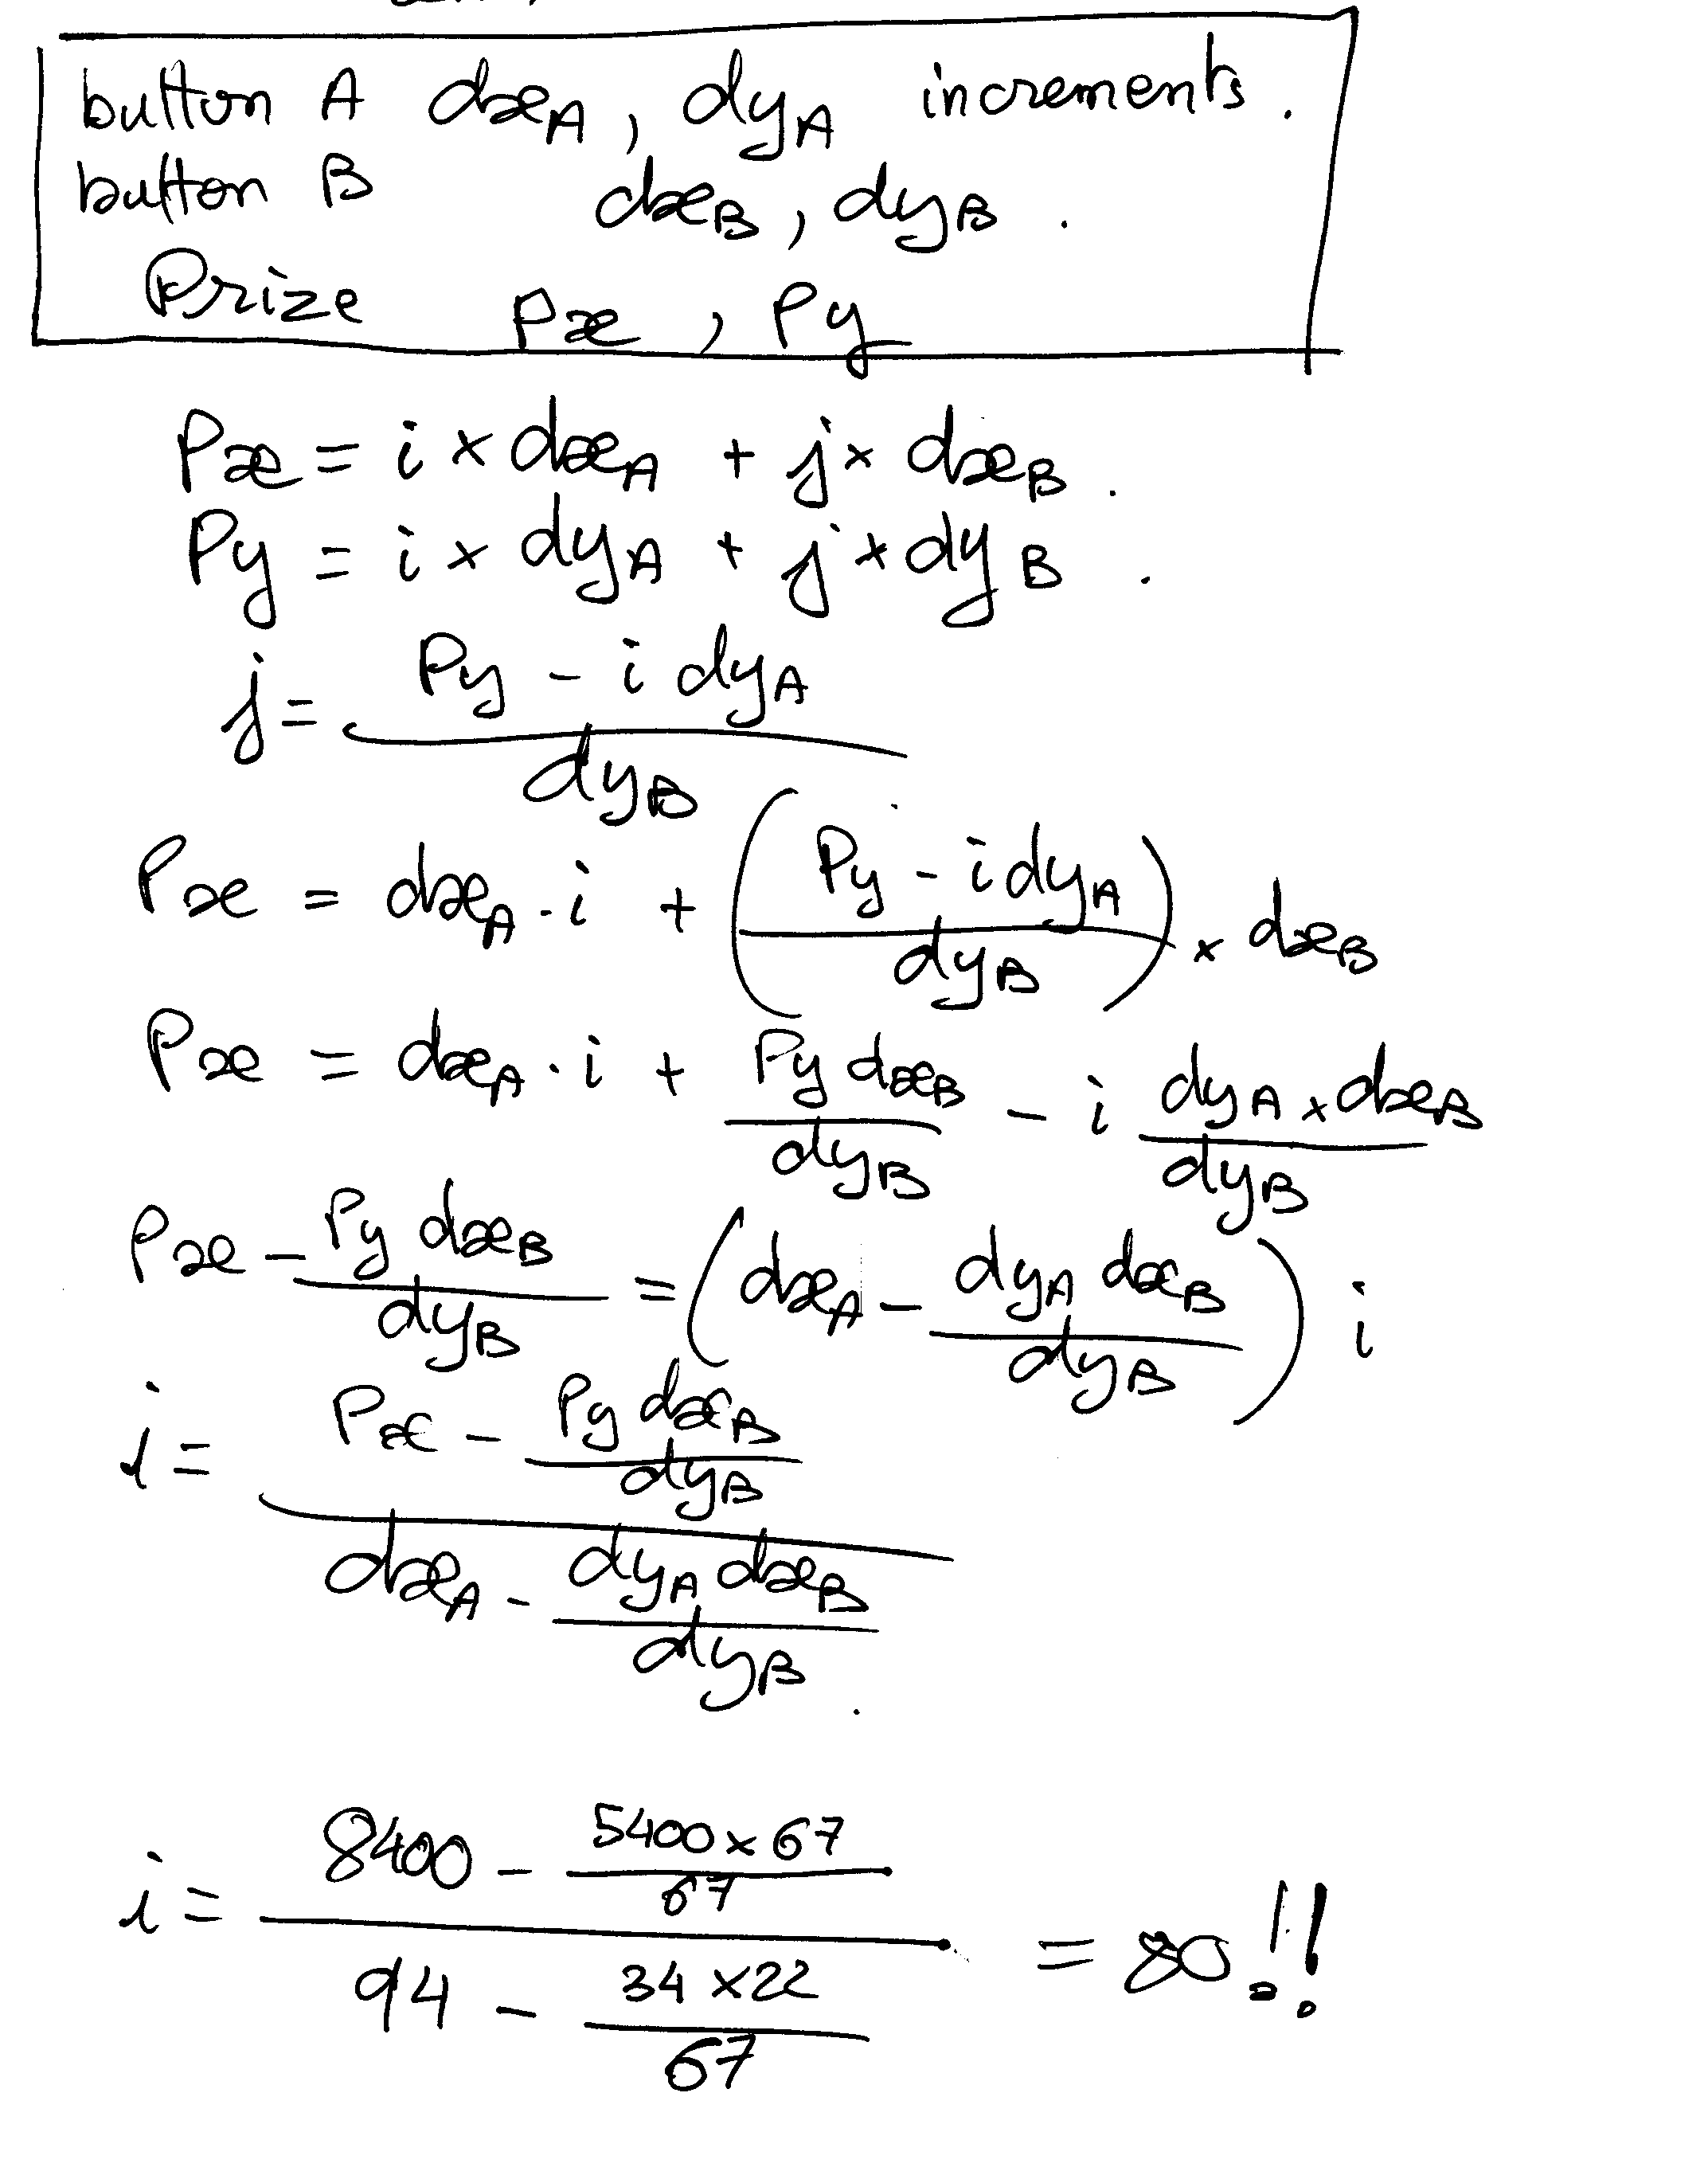 button A dx_A, dy_A increments.
button B dx_B, dy_B.
Prize Px, Py
Px = i × dx_A + j × dx_B.
Py = i × dy_A + j × dy_B.
j = (Py - i dy_A) / dy_B
Px = dx_A · i + ((Py - i dy_A) / dy_B) × dx_B
Px = dx_A · i + (Py dx_B) / dy_B - i (dy_A × dx_B) / dy_B
Px - (Py dx_B) / dy_B = (dx_A - (dy_A dx_B) / dy_B) i
i = (Px - (Py dx_B) / dy_B) / (dx_A - (dy_A dx_B) / dy_B).
i = (8400 - (5400 × 67) / 67) / (94 - (34 × 22) / 67) = 80!!